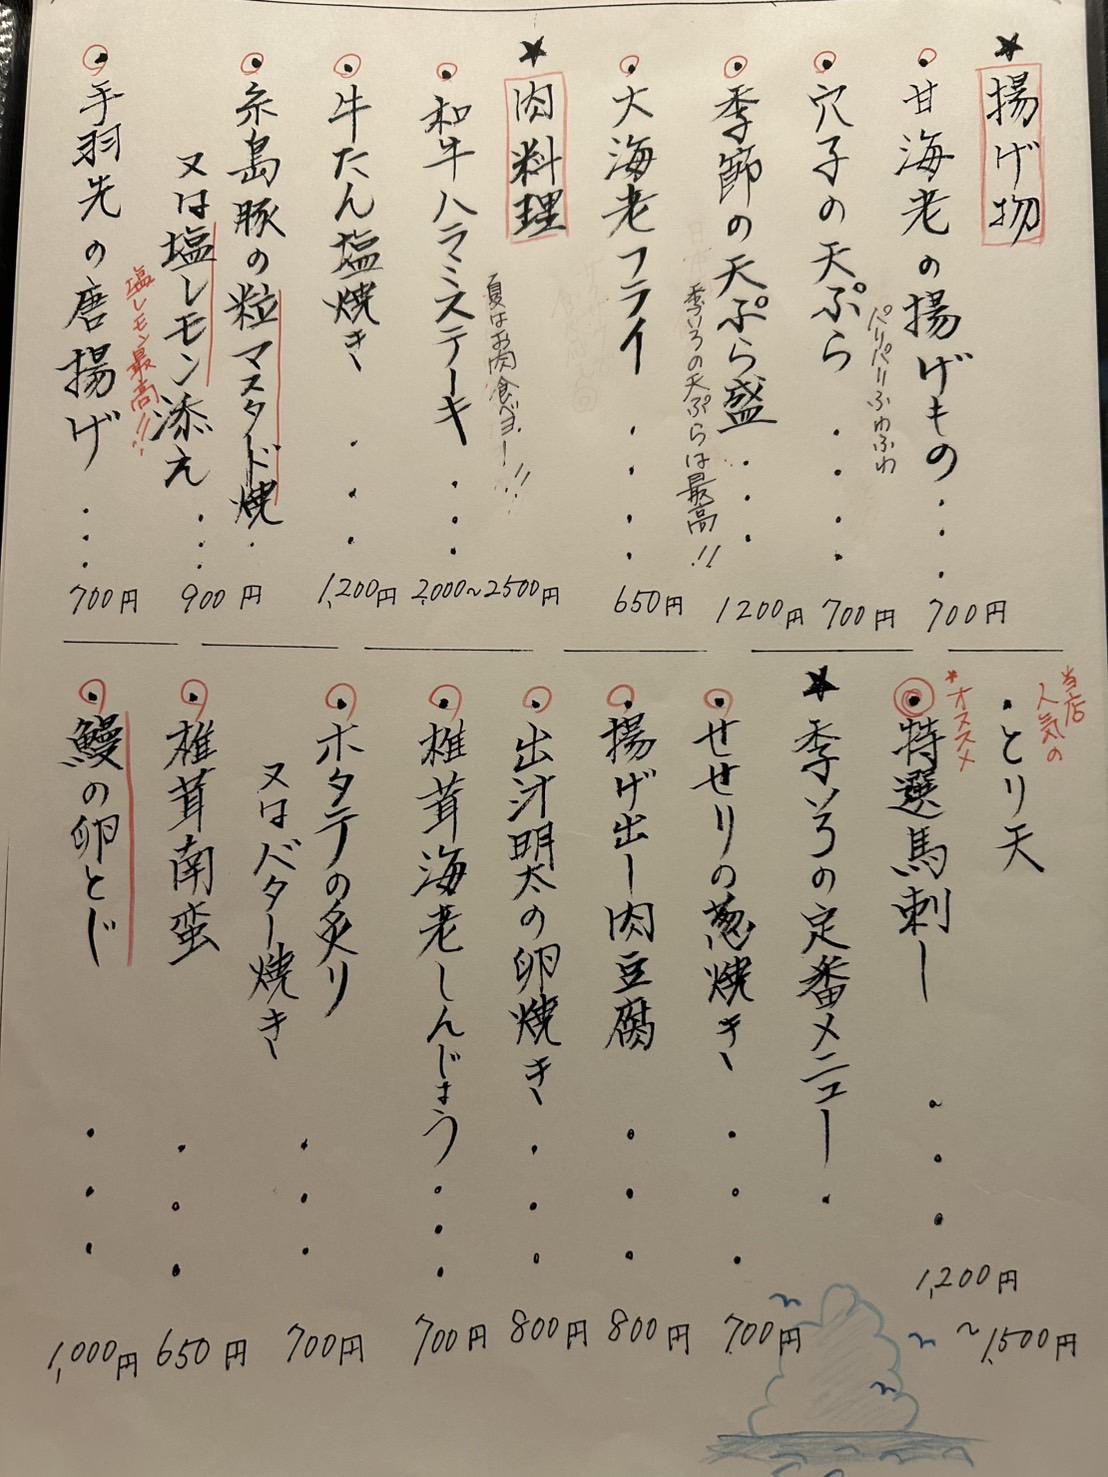 ★揚げ物
・甘海老の揚げもの・・・700円
・穴子の天ぷら・・・700円
パリパリふわふわ
・季節の天ぷら盛・・・1200円
季いろの天ぷらは最高!!
・大海老フライ・・・650円
★肉料理
夏はお肉食べヨー!!
・和牛ハラミステーキ・・・2,000~2500円
・牛たん塩焼き・・・1,200円
・糸島豚の粒マスタード焼
又は塩レモン添え・・・900円
塩レモン最高!!
・手羽先の唐揚げ・・・700円
当店
人気の
・とり天
*オススメ
・特選馬刺し・・・1,200円
~1,500円
★季いろの定番メニュー
・せせりの葱焼き・・・700円
・揚げ出し肉豆腐・・・800円
・出汁明太の卵焼き・・・800円
・椎茸海老しんじょう・・・700円
・ホタテの炙り
又はバター焼き・・・700円
・椎茸南蛮・・・650円
・鰻の卵とじ・・・1,000円